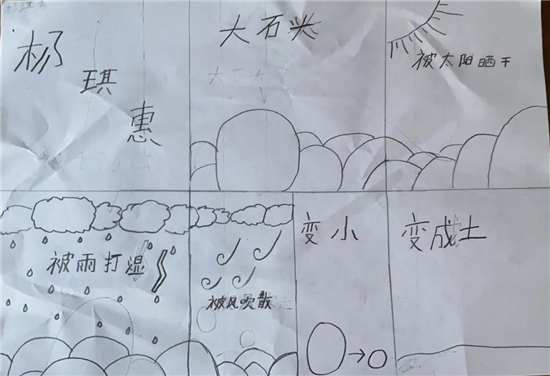 杨
琪
惠
大石米
被太阳晒干
被雨打湿
被风吹散
变小
变成土